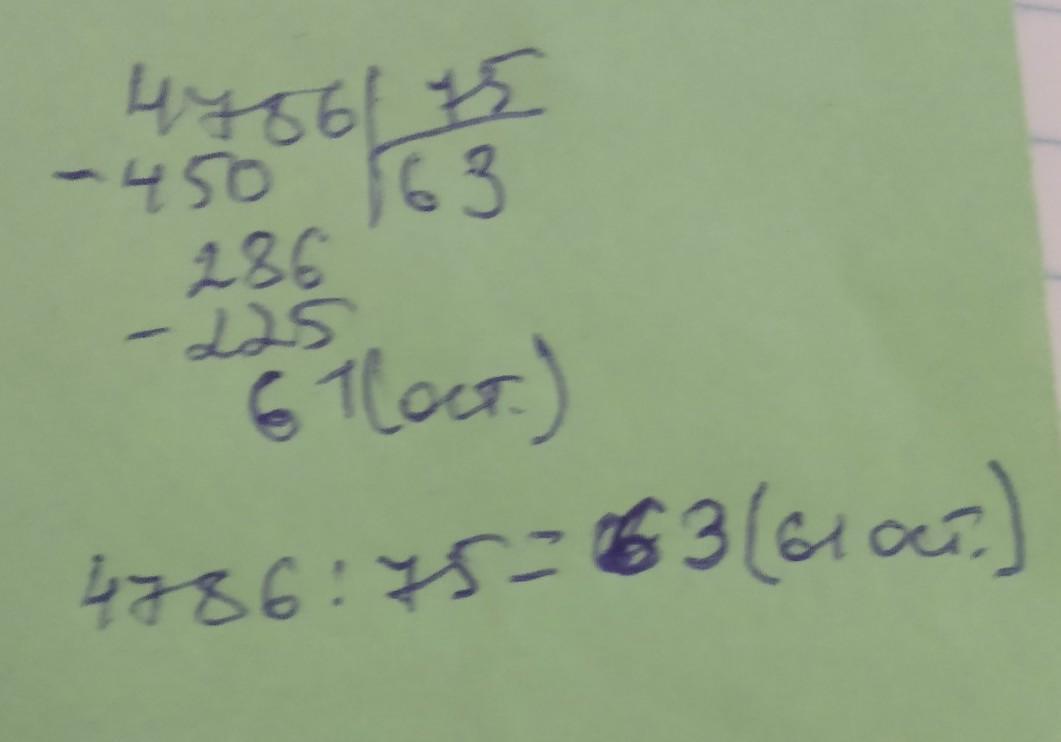 4786 75
-450 63
286
-225
61 (ост.)
4786 : 75 = 63 (61 ост.)